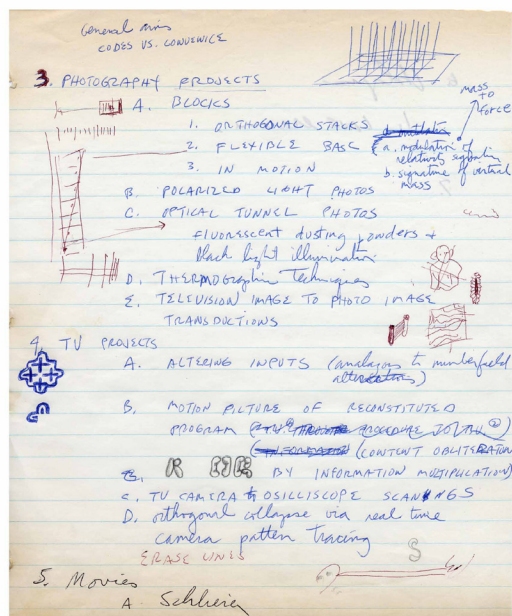 General
CODES VS.
MASS
TO
FORCE
3. PHOTOGRAPHY PROJECTS
A. BLOCKS
1. ORTHOGONAL STACKS
2. FLEXIBLE BASE (a. modulation of
relativity
3. IN MOTION b. signature of virtual
mass
B. POLARIZED LIGHT PHOTOS
C. OPTICAL TUNNEL PHOTOS
fluorescent dusting powders +
black light illumination
D. THERMOGRAPHIC Techniques
E. TELEVISION IMAGE TO PHOTO IMAGE
TRANSDUCTIONS
4. TV PROJECTS
A. ALTERING INPUTS (analagous to
B. MOTION PICTURE OF RECONSTITUTED
PROGRAM
(CONTENT OBLITERATION
BY INFORMATION MULTIPLICATION)
C. TV CAMERA OSILLISCOPE SCANNINGS
D. orthogonal collapse via real time
camera patten tracing
ERASE LINES
S
5. Movies
A.